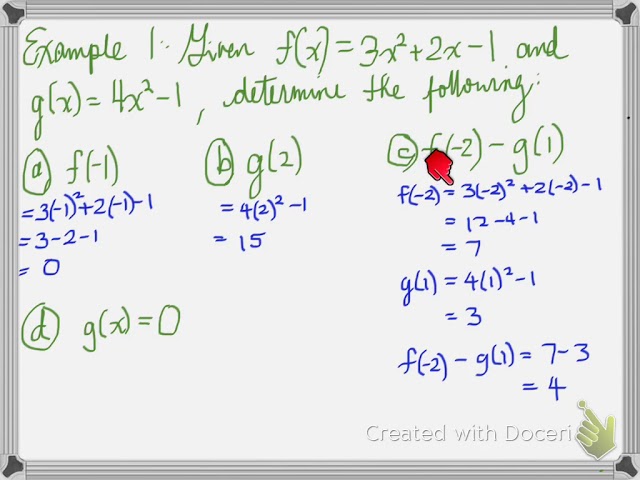 Example 1: Given f(x) = 3x²+2x-1 and
g(x) = 4x²-1, determine the following:
a) f(-1)
= 3(-1)²+2(-1)-1
= 3-2-1
= 0
b) g(2)
= 4(2)²-1
= 15
c) f(-2) - g(1)
f(-2) = 3(-2)²+2(-2)-1
= 12-4-1
= 7
g(1) = 4(1)²-1
= 3
f(-2) - g(1) = 7-3
= 4
d) g(x) = 0
Created with Doceri